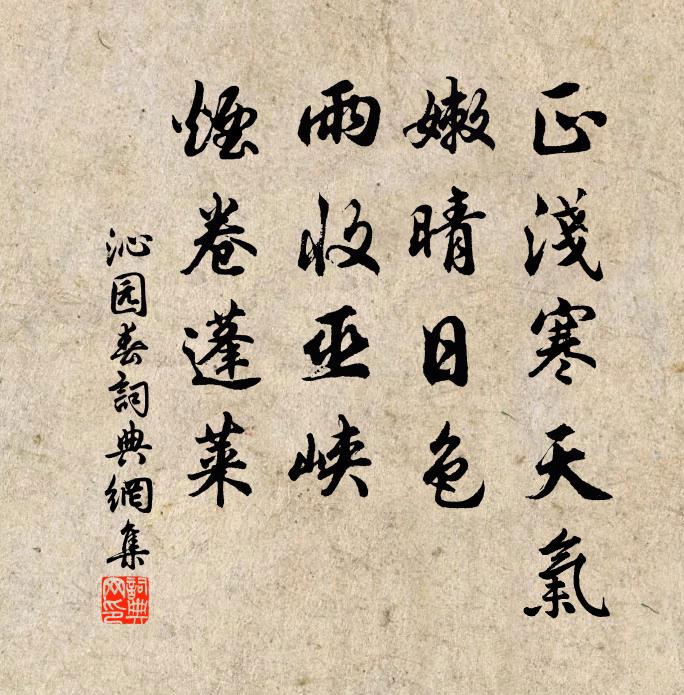 正淺寒天氣
嫩晴日色
雨收巫峽
煙卷蓬萊
沁园春詞典網集
詞典网印